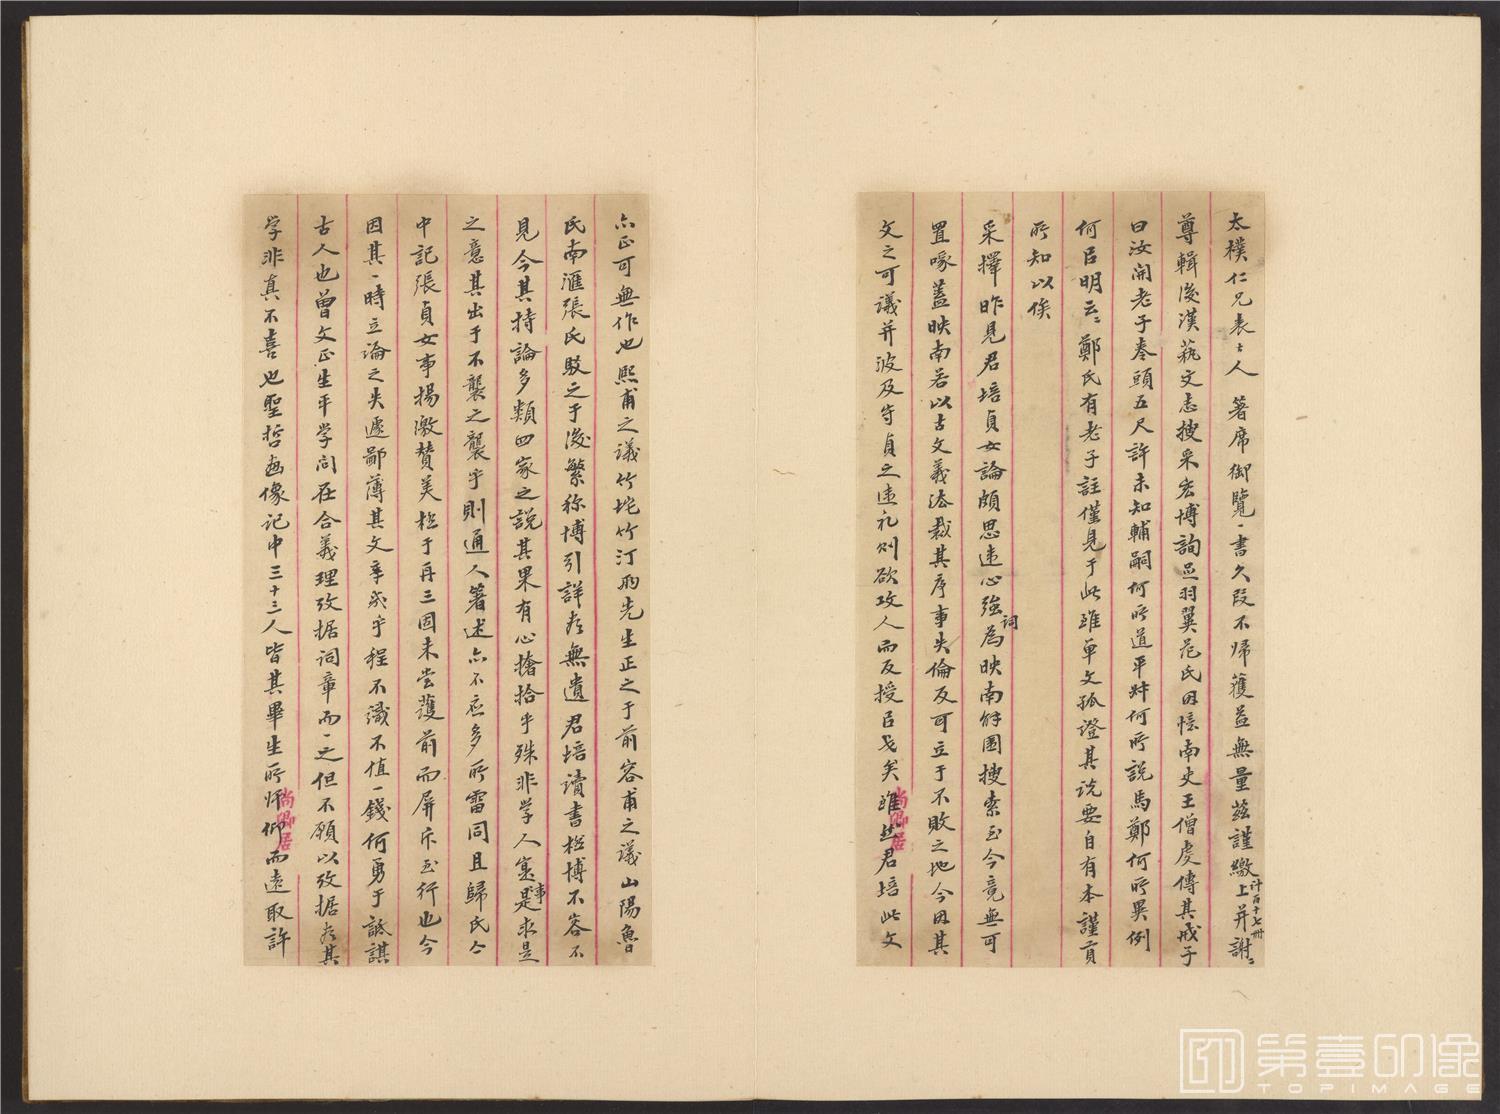 太樸仁兄表士人 箸席御覽一書久叚不歸獲益無量茲謹繳上計百十七冊并謝〻
尊輯後漢藝文志搜采宏博詢足羽翼范氏因憶南史王僧虔傳其戒子
曰汝開老子卷頭五尺許未知輔嗣何所道平叔何所說馬鄭何所異例
何臣明云〻鄭氏有老子註僅見于此雖單文孤證其說要自有本謹貢
所知以俟
采擇昨見君培貞女論頗思違心強詞為映南解圍搜索至今竟無可
置喙蓋映南若以古文義法裁其序事失倫反可立于不敗之地今因其
文之可議并波及守貞之違礼則欲攻人而反授臣戈矣雖然君培此文
亦正可無作也熙甫之議竹垞竹汀兩先生正之于前容甫之議山陽魯
氏南滙張氏駁之于後繁称博引詳尽無遺君培讀書極博不容不
見今其持論多類四家之說其果有心搶拾乎殊非学人寔事求是
之意其出于不襲之襲乎則通人箸述亦不應多所雷同且歸氏仝
中記張貞女事揚激賛美極于再三固未尝護前而屏斥至行也今
因其一時立論之失遽鄙薄其文辛或乎程不識不值一錢何勇于詆諆
古人也曾文正生平学问在合義理攷据词章而一之但不願以攷据尽其
学非真不喜也聖哲画像记中三十三人皆其畢生所师仰而遠取許
尚卿居
尚卿居
第壹印像
TOPIMAGE